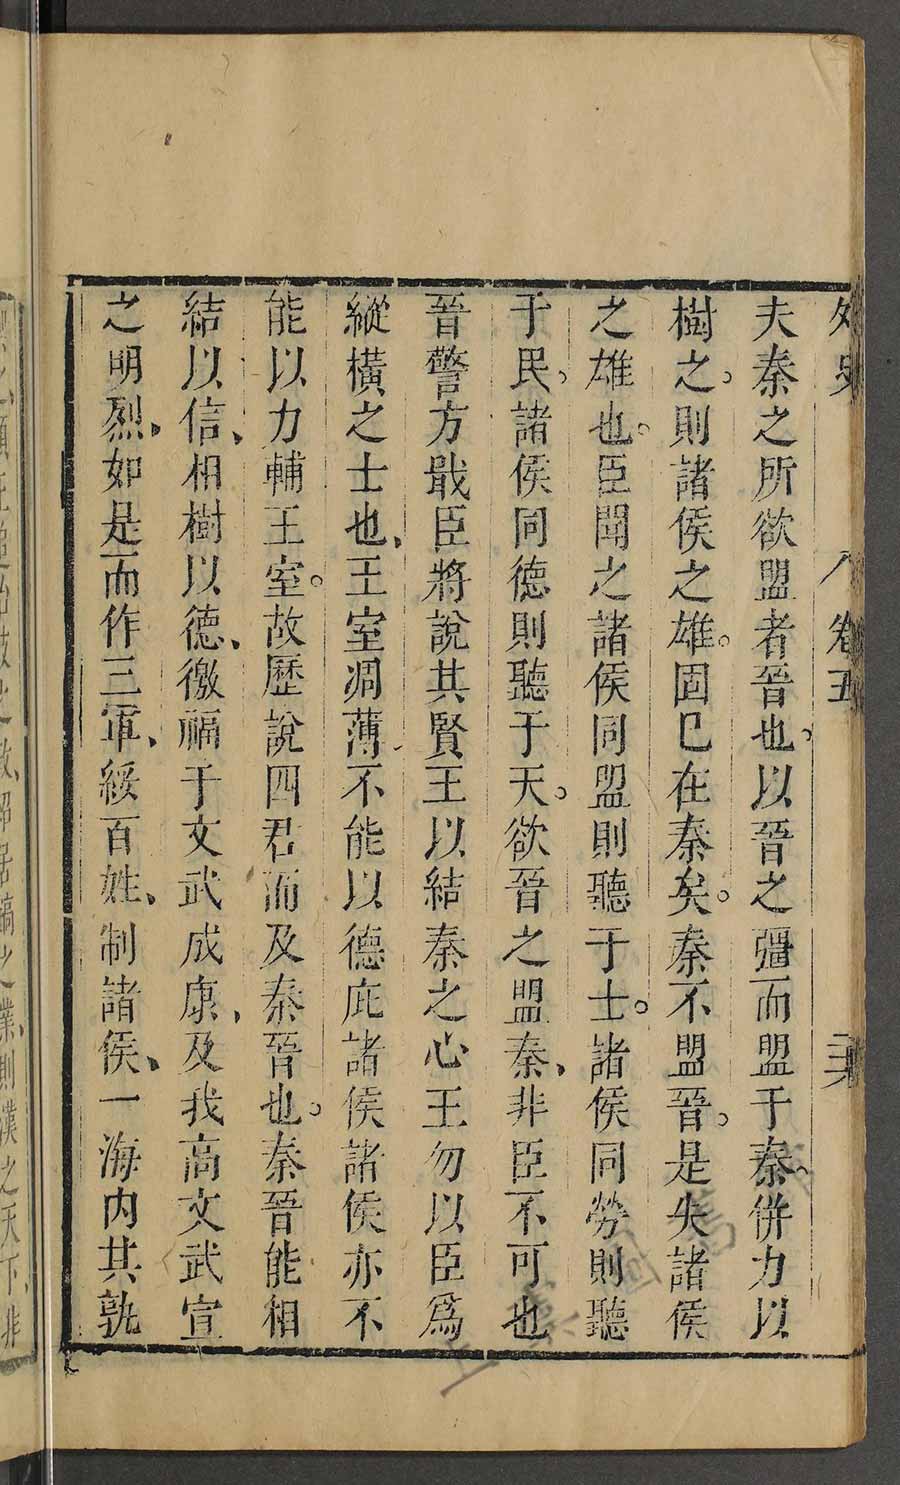 外史 卷五 二六
夫秦之所欲盟者晉也。以晉之彊而盟于秦。併力以
樹之。則諸侯之雄。固已在秦矣。秦不盟晉。是失諸侯
之雄也。臣聞之諸侯同盟則聽于士。諸侯同勞則聽
于民。諸侯同德則聽于天。欲晉之盟秦、非臣不可也
晉警方戢臣將說其賢王以結秦之心王勿以臣爲
縱橫之士也、王室凋薄不能以德庇諸侯諸侯亦不
能以力輔王室。故歷說四君而及秦晉也。秦晉能相
結以信、相樹以德、徼福于文武成康、及我高文武宣
之明烈、如是而作三軍、綏百姓、制諸侯、一海內其孰